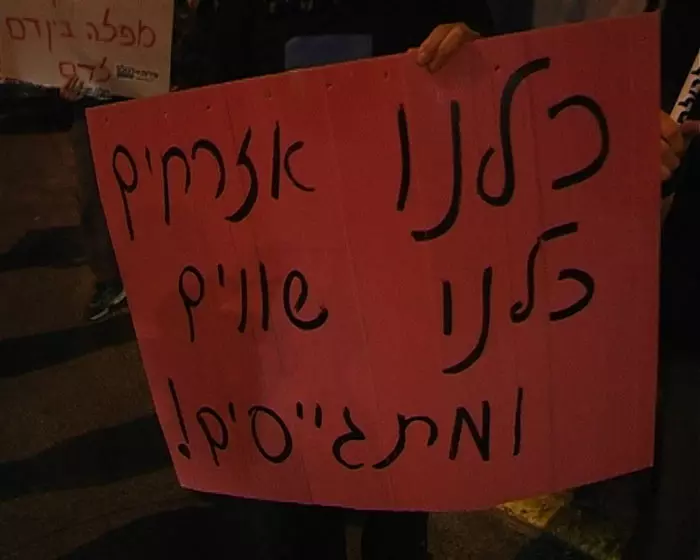 מפלה בין דם
לדם
כלנו אזרחים
כלנו שווים
ומתגייסים!